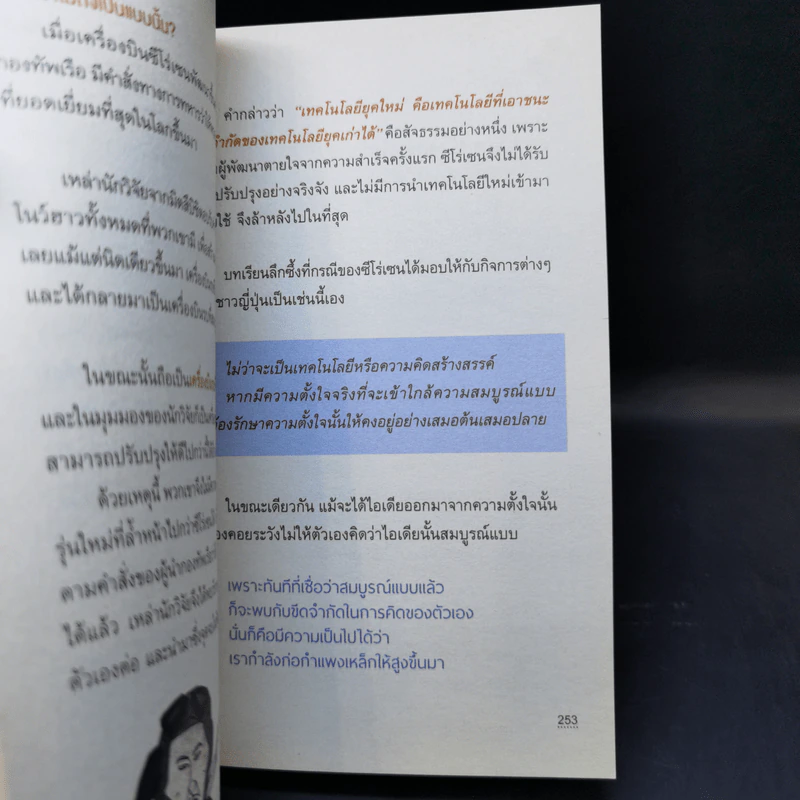 เมื่อเครื่องบินซีโร่เซนพัฒนา
กองทัพเรือ มีคำสั่งทางการทหารว่า
ที่ยอดเยี่ยมที่สุดในโลกขึ้นมา
เหล่านักวิจัยจากมิตซูบิชิ
โนว์ฮาวทั้งหมดที่พวกเขามี เพื่อ
เลยแม้แต่นิดเดียวขึ้นมา
และได้กลายมาเป็นเครื่องบิน
ในขณะนั้นถือเป็น
และในมุมมองของนักวิจัยก็เป็น
สามารถปรับปรุงให้ดีไปกว่านี้
ด้วยเหตุนี้ พวกเขาจึง
รุ่นใหม่ที่ล้ำหน้าไปกว่า
ตามคำสั่งของผู้นำกองทัพ
ได้แล้ว เหล่านักวิจัยจึง
ตัวเองต่อ และนำมาซึ่ง
คำกล่าวว่า "เทคโนโลยียุคใหม่ คือเทคโนโลยีที่เอาชนะ
กำกัดของเทคโนโลยียุคเก่าได้" คือสัจธรรมอย่างหนึ่ง เพราะ
ผู้พัฒนาตายใจจากความสำเร็จครั้งแรก ซีโร่เซนจึงไม่ได้รับ
ปรับปรุงอย่างจริงจัง และไม่มีการนำเทคโนโลยีใหม่เข้ามา
ใช้ จึงล้าหลังไปในที่สุด
บทเรียนลึกซึ้งที่กรณีของซีโร่เซนได้มอบให้กับกิจการต่างๆ
ชาวญี่ปุ่นเป็นเช่นนี้เอง
ไม่ว่าจะเป็นเทคโนโลยีหรือความคิดสร้างสรรค์
หากมีความตั้งใจจริงที่จะเข้าใกล้ความสมบูรณ์แบบ
องรักษาความตั้งใจนั้นให้คงอยู่อย่างเสมอต้นเสมอปลาย
ในขณะเดียวกัน แม้จะได้ไอเดียออกมาจากความตั้งใจนั้น
องคอยระวังไม่ให้ตัวเองคิดว่าไอเดียนั้นสมบูรณ์แบบ
เพราะทันทีที่เชื่อว่าสมบูรณ์แบบแล้ว
ก็จะพบกับขีดจำกัดในการคิดของตัวเอง
นั่นก็คือมีความเป็นไปได้ว่า
เรากำลังก่อกำแพงเหล็กให้สูงขึ้นมา
253